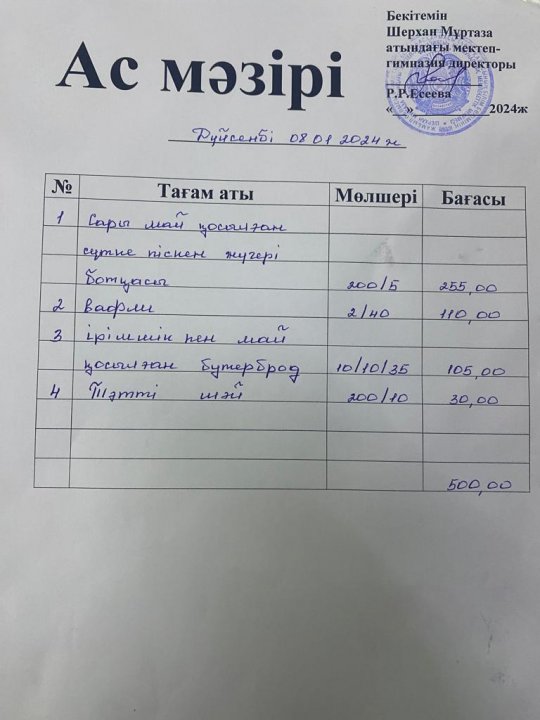 Бекітемін
Шерхан Мұртаза
атындағы мектеп-
гимназия директоры
Р.Р.Есеева
« » 2024ж
Ас мәзірі
Дүйсенбі 08 01 2024 ж
№ Тағам аты Мөлшері Бағасы
1 Сары май қосылған
сүтке піскен жүгері
ботқасы 200/5 255,00
2 вафли 2/40 110,00
3 ірімшік пен май
қосылған бутерброд 10/10/35 105,00
4 Тәтті шәй 200/10 30,00
500,00